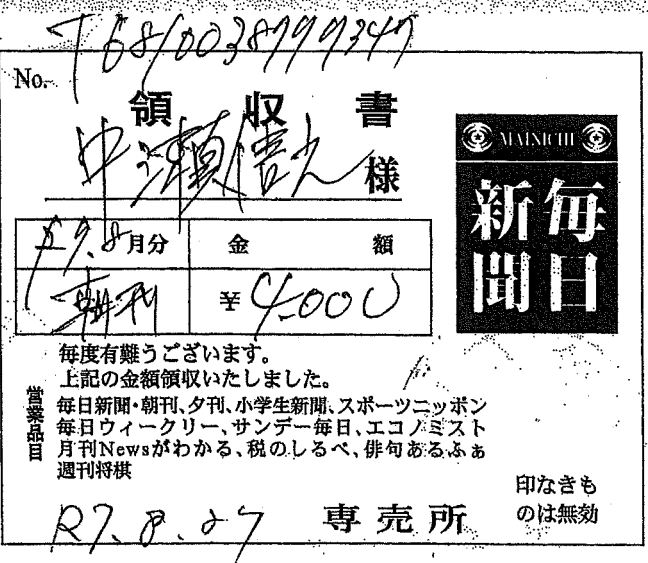 T6810038799347
No.
領収書
中瀬 様
R7.8月分 金額
朝刊 ¥4,000
MAINICHI
毎日新聞
毎度有難うございます。
上記の金額領収いたしました。
営業品目
毎日新聞・朝刊、夕刊、小学生新聞、スポーツニッポン
毎日ウィークリー、サンデー毎日、エコノミスト
月刊Newsがわかる、税のしるべ、俳句あるふぁ
週刊将棋
R7.8.27 専売所
印なきも
のは無効